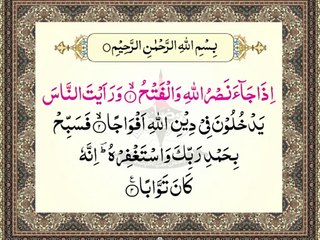 بِسْمِ اللهِ الرَّحْمٰنِ الرَّحِيْمِ ○
اِذَا جَآءَ نَصْرُ اللهِ وَالْفَتْحُ ۙ﴿۱﴾ وَرَاَيْتَ النَّاسَ
يَدْخُلُوْنَ فِيْ دِيْنِ اللهِ اَفْوَاجًا ۙ﴿۲﴾ فَسَبِّحْ
بِحَمْدِ رَبِّكَ وَاسْتَغْفِرْهُ ؕ اِنَّهٗ
كَانَ تَوَّابًا ﴿۳﴾